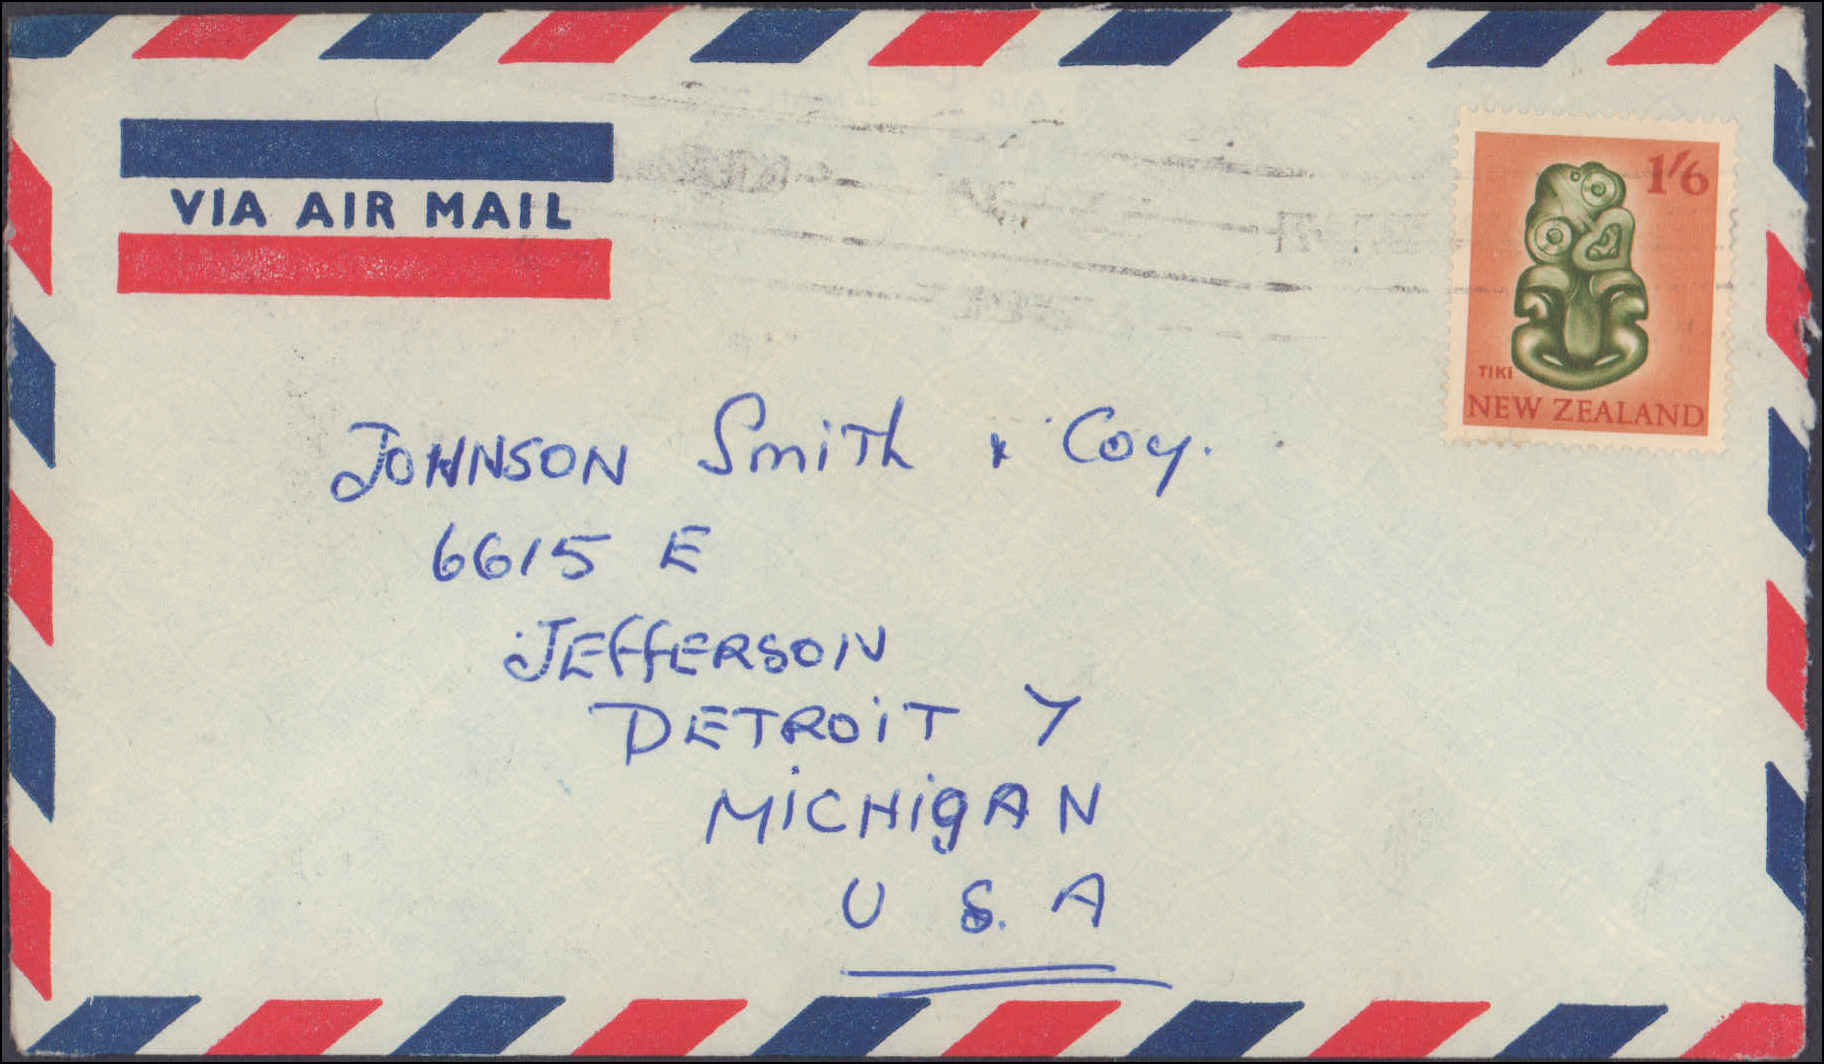 VIA AIR MAIL
1/6
TIKI
NEW ZEALAND
JOHNSON Smith & Coy.
6615 E
JEFFERSON
DETROIT 7
MICHIGAN
U S. A